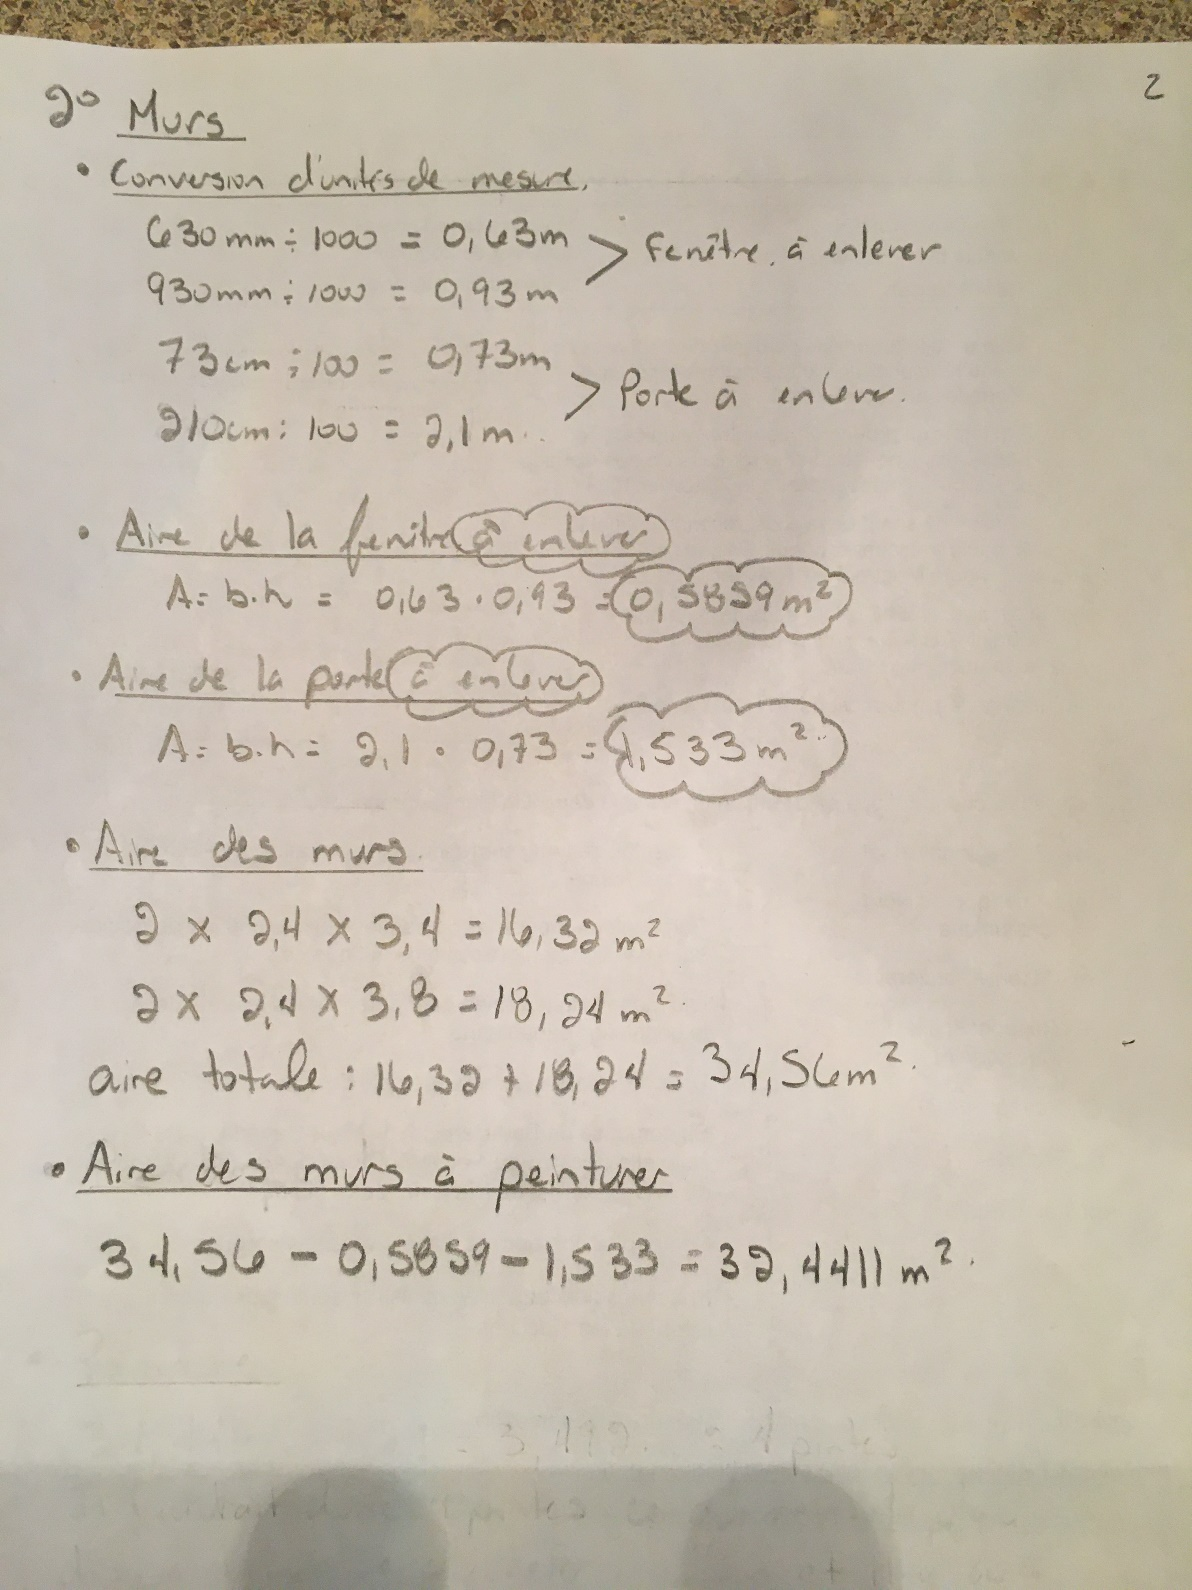 2
2° Murs
• Conversion d'unités de mesure.
630mm ÷ 1000 = 0,63m
> Fenêtre. à enlever
930mm ÷ 1000 = 0,93m
73cm ÷ 100 = 0,73m
> Porte à enlever.
210cm ÷ 100 = 2,1m.
• Aire de la fenêtre à enlever
A= b.h = 0,63 . 0,93 = 0,5859m²
• Aire de la porte à enlever
A= b.h = 2,1 . 0,73 = 1,533m².
• Aire des murs.
2 x 2,4 x 3,4 = 16,32 m²
2 x 2,4 x 3,8 = 18,24 m².
aire totale : 16,32 + 18,24 = 34,56m².
• Aire des murs à peinturer
34,56 - 0,5859 - 1,533 = 32,4411 m².